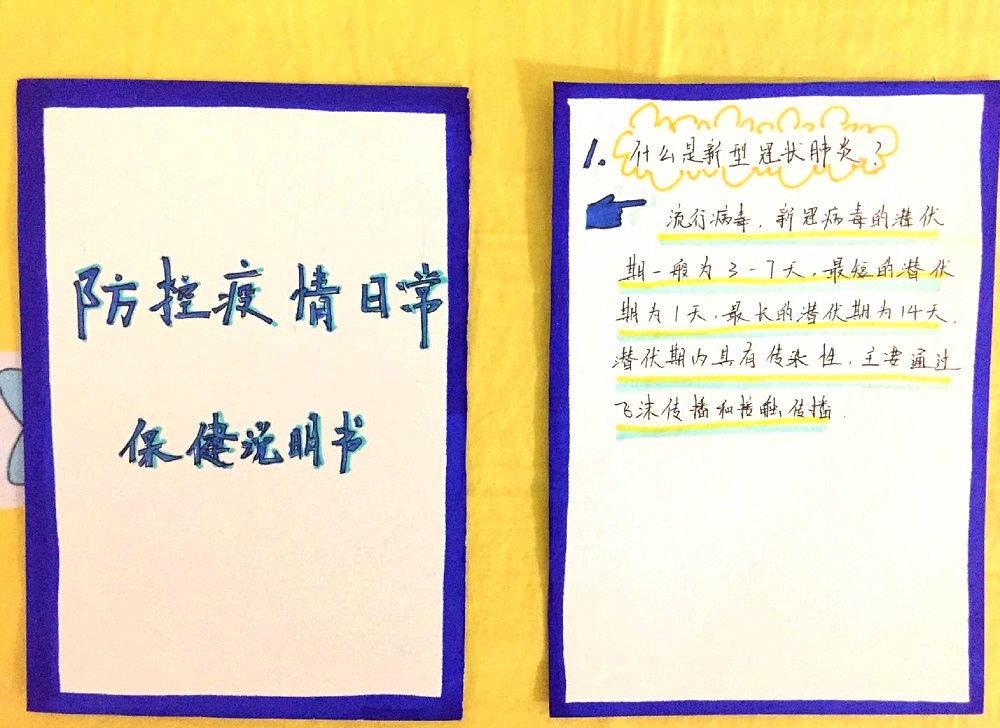 防控疫情日常
保健说明书
1. 什么是新型冠状肺炎?
流行病毒,新冠病毒的潜伏
期一般为3-7天,最短的潜伏
期为1天,最长的潜伏期为14天,
潜伏期内具有传染性,主要通过
飞沫传播和接触传播.